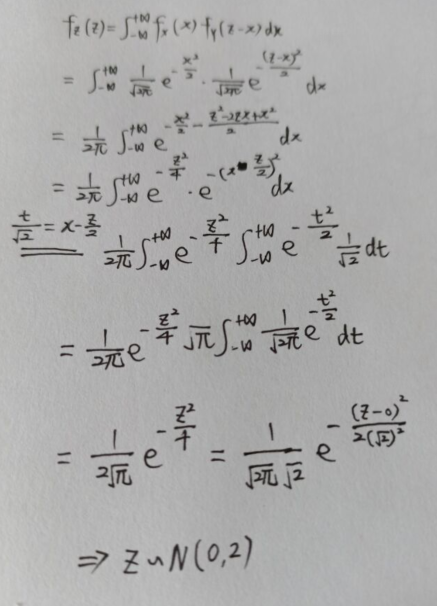 f_Z(z) = ∫_{-∞}^{+∞} f_X(x) f_Y(z-x) dx
= ∫_{-∞}^{+∞} \frac{1}{\sqrt{2π}} e^{-\frac{x^2}{2}} · \frac{1}{\sqrt{2π}} e^{-\frac{(z-x)^2}{2}} dx
= \frac{1}{2π} ∫_{-∞}^{+∞} e^{-\frac{x^2}{2} - \frac{z^2-2zx+x^2}{2}} dx
= \frac{1}{2π} ∫_{-∞}^{+∞} e^{-\frac{z^2}{4}} · e^{-(x-\frac{z}{2})^2} dx
\frac{t}{\sqrt{2}} = x - \frac{z}{2} \frac{1}{2π} ∫_{-∞}^{+∞} e^{-\frac{z^2}{4}} ∫_{-∞}^{+∞} e^{-\frac{t^2}{2}} \frac{1}{\sqrt{2}} dt
= \frac{1}{2π} e^{-\frac{z^2}{4}} \sqrt{π} ∫_{-∞}^{+∞} \frac{1}{\sqrt{2π}} e^{-\frac{t^2}{2}} dt
= \frac{1}{2\sqrt{π}} e^{-\frac{z^2}{4}} = \frac{1}{\sqrt{2π}\sqrt{2}} e^{-\frac{(z-0)^2}{2(\sqrt{2})^2}}
⇒ Z ~ N(0,2)